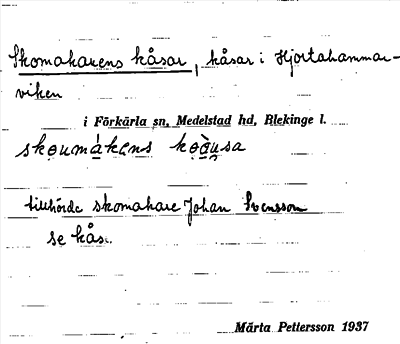 Skomakarens kåsar, kåsar i Hjortahammar-
viken
i Förkärla sn, Medelstad hd, Blekinge l.
skoumákens koàusa
tillhörde skomakare Johan Svensson
se kås.
Märta Pettersson 1937